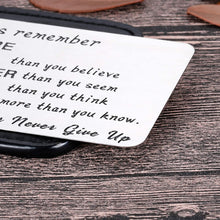 s remember
RE
than you believe
ER than you seem
than you think
more than you know.
Never Give Up